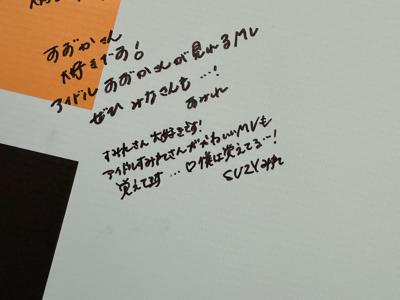 すずかさん
大好きです!
アイドル すずかさんが見れるMV
ぜひ みなさんも…!
すみれ
すみれさん大好きです!
アイドルすみれさんがかわいいMVも
覚えてます…♡僕は覚えてる…!
SUZY